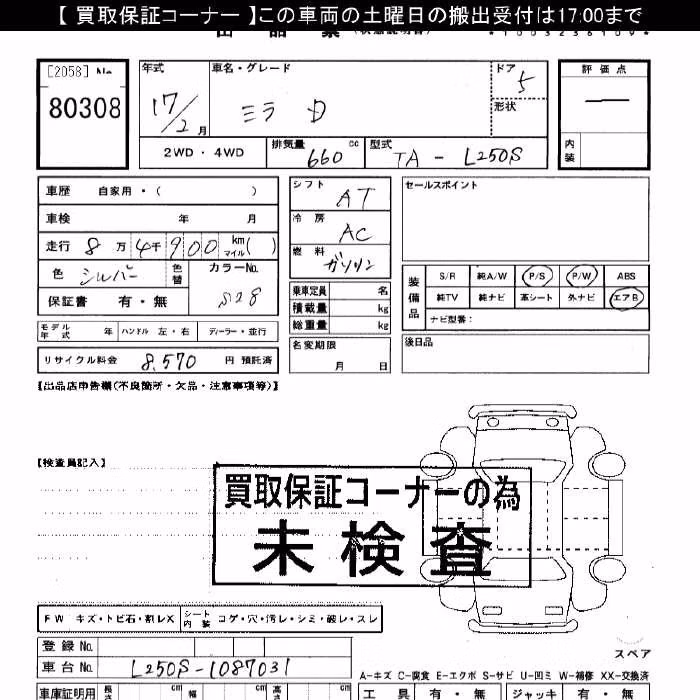 【 買取保証コーナー 】この車両の土曜日の搬出受付は17:00まで
[2058] No.
80308
年式
17/2月
車名・グレード
ミラ D
ドア
5
形状
評価点
―
内装
2WD ・ 4WD
排気量
660
cc
型式
TA - L250S
車歴 自家用 ・ ( )
車検 年 月
走行 8万4千900 km マイル ( )
色 シルバー
色替
カラーNo.
S28
保証書 有 ・ 無
モデル年式 年 ハンドル 左・右 ディーラー・並行
リサイクル料金 8,570 円 預託済
シフト
AT
冷房
AC
燃料
ガソリン
乗車定員 名
積載量 kg
総重量 kg
名変期限
月 日
セールスポイント
装備品
S/R 純A/W P/S P/W ABS
純TV 純ナビ 革シート 外ナビ エアB
ナビ型番：
後日品
【出品店申告欄(不良箇所・欠品・注意事項等)】
【検査員記入】
買取保証コーナーの為
未検査
FW キズ・トビ石・割レX
シート内装 コゲ・穴・汚レ・シミ・破レ・スレ
登録No.
車台No. L250S-1087031
スペア
A-キズ C-腐食 E-エクボ S-サビ U-凹ミ W-補修 XX-交換済
車庫証明用 長さ cm 幅 cm 高さ cm
工具 有 ・ 無 ジャッキ 有 ・ 無